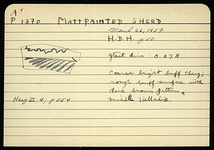 A'
P 1370 MATTPAINTED SHERD
March 26, 1937
H.D.H. p.50
grtest dim - 0.078
Coarse bright buff clay;
rough buff surface with
dark brown pattern.
Middle Helladic